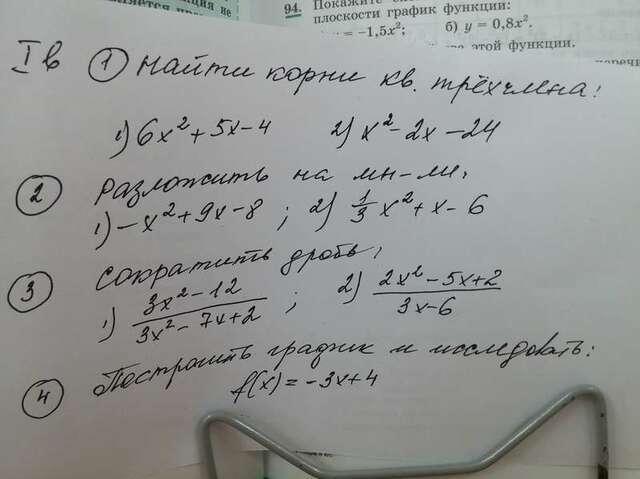 94. Покажите
плоскости график функции:
= –1,5x²; б) y = 0,8x².
этой функции.
I в ① Найти корни кв. трёхчлена:
1) 6x² + 5x - 4 2) x² - 2x - 24
② Разложить на мн-ли.
1) -x² + 9x - 8 ; 2) 1/3 x² + x - 6
③ Сократить дробь:
1) (3x² - 12)/(3x² - 7x + 2) ; 2) (2x² - 5x + 2)/(3x - 6)
④ Построить график и исследовать:
f(x) = -3x + 4